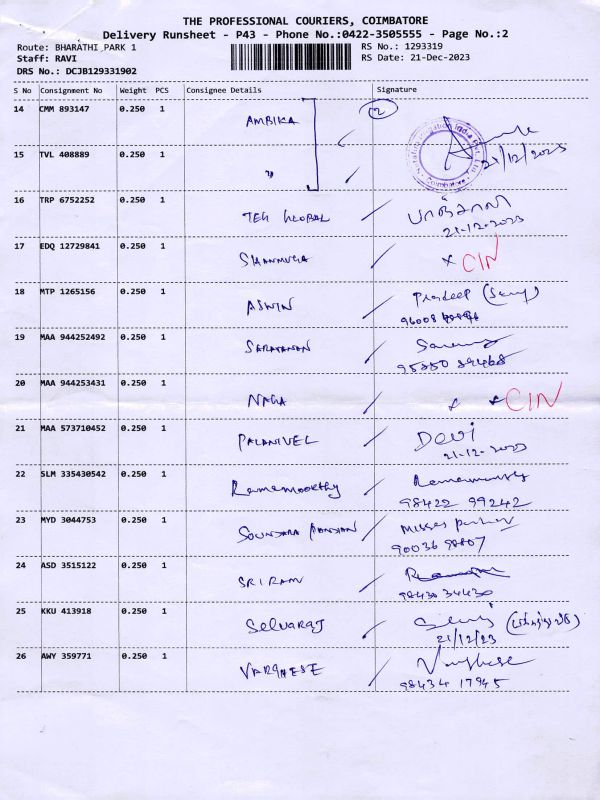 THE PROFESSIONAL COURIERS, COIMBATORE
Delivery Runsheet - P43 - Phone No.:0422-3505555 - Page No.:2
Route: BHARATHI PARK 1 RS No.: 1293319
Staff: RAVI RS Date: 21-Dec-2023
DRS No.: DCJB129331902
S No Consignment No Weight PCS Consignee Details Signature
14 CMM 893147 0.250 1 AMBIKA 2
21/12/2023
15 TVL 408889 0.250 1 "
Coimbatore
16 TRP 6752252 0.250 1 TEH GLOBAL
21-12-2023
17 EDQ 12729841 0.250 1 SHANMUGA x CIN
18 MTP 1265156 0.250 1 ASWIN Pradeep
96008
19 MAA 944252492 0.250 1 SARAVANAN
95850 89468
20 MAA 944253431 0.250 1 NAGA x x CIN
21 MAA 573710452 0.250 1 PALANIVEL Devi
21-12-2023
22 SLM 335430542 0.250 1 Ramamoorthy
98422 99242
23 MYD 3044753 0.250 1 SOUNDARA PANDIAN
90036 98807
24 ASD 3515122 0.250 1 SRIRAM
98430 34430
25 KKU 413918 0.250 1 Selvaraj
21/12/23
26 AWY 359771 0.250 1 VARGHESE Varghese
98434 17945